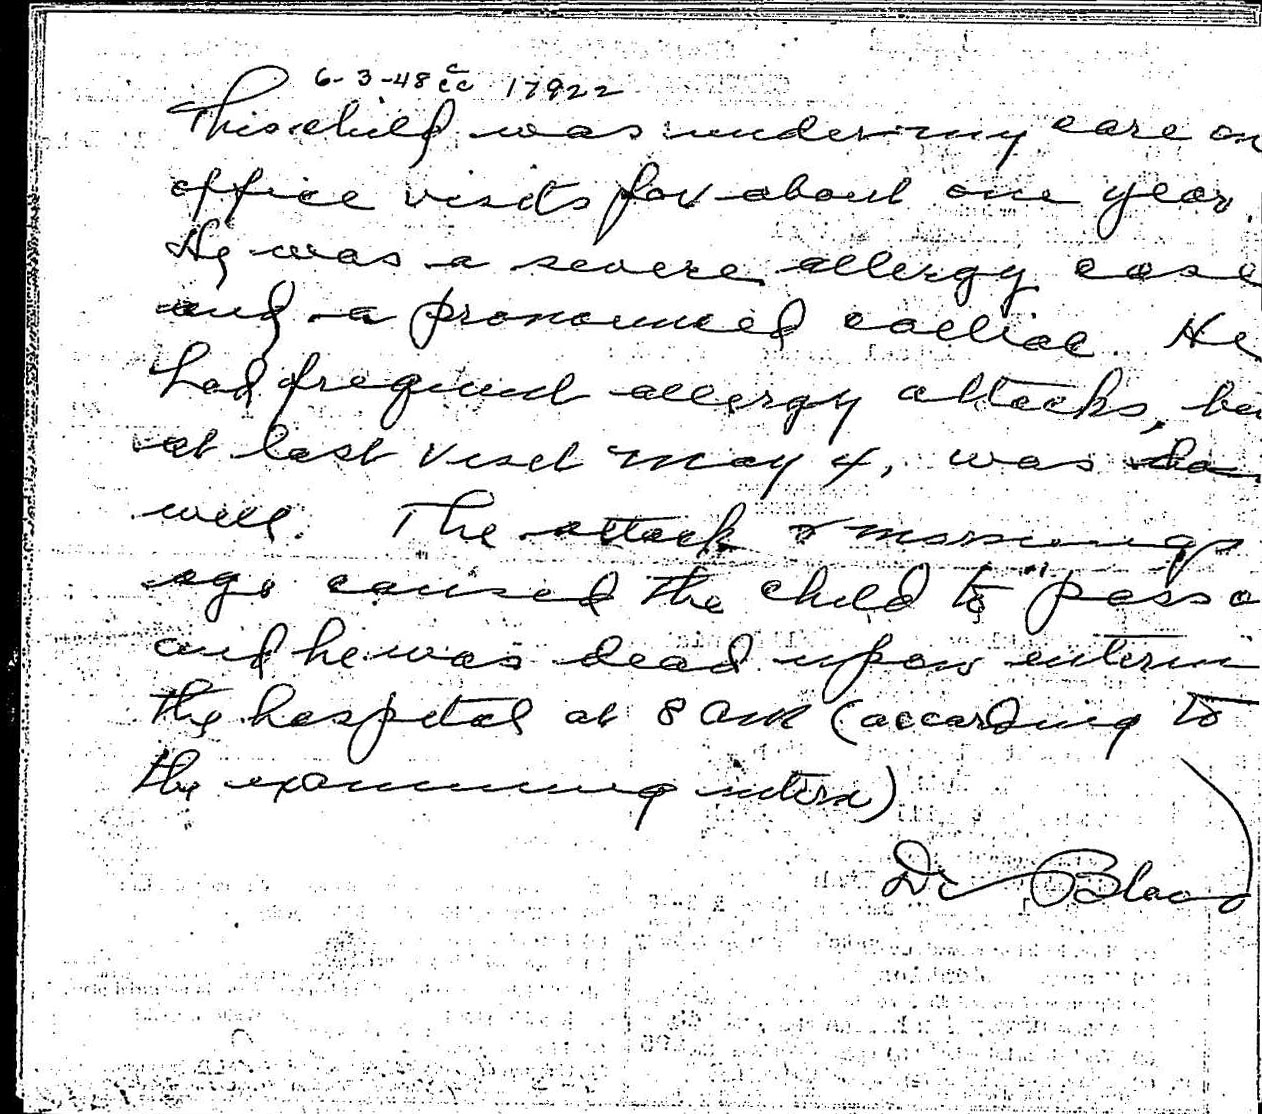 6-3-48 cc 17922
This child was under my care on
office visits for about one year.
He was a severe allergy case
and a pronounced coeliac. He
had frequent allergy attacks, bu
at last visit may 4, was
well. The attack
ago caused the child to "pass o
and he was dead upon enterin
the hospital at 8 AM (according to
the examining intern)
Dr